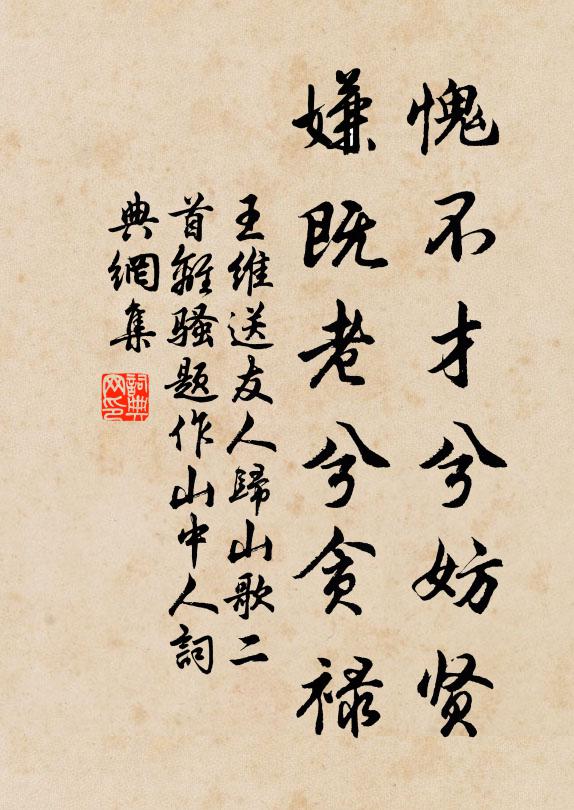 愧不才兮妨贤
嫌既老兮贪禄
王維送友人歸山歌二
首離骚题作山中人詞
典網集
詞典网印